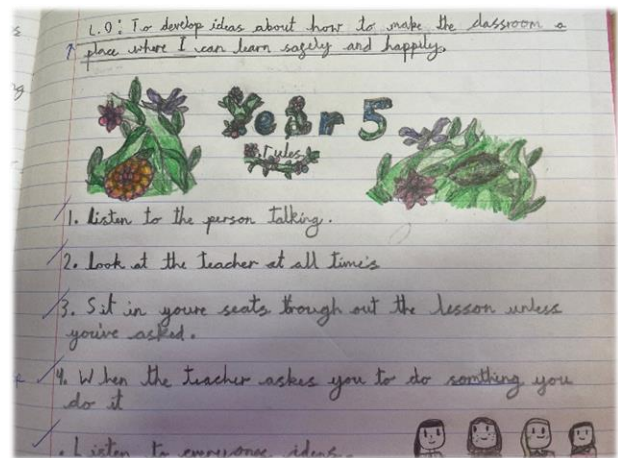 L.O: To develop ideas about how to make the classroom a
place where I can learn sagely and happily.
Year 5
rules
1. Listen to the person talking.
2. Look at the teacher at all time's
3. Sit in youre seats trough out the lesson unless
you've asked.
4. When the teacher askes you to do somthing you
do it
. Listen to everyones ideas.